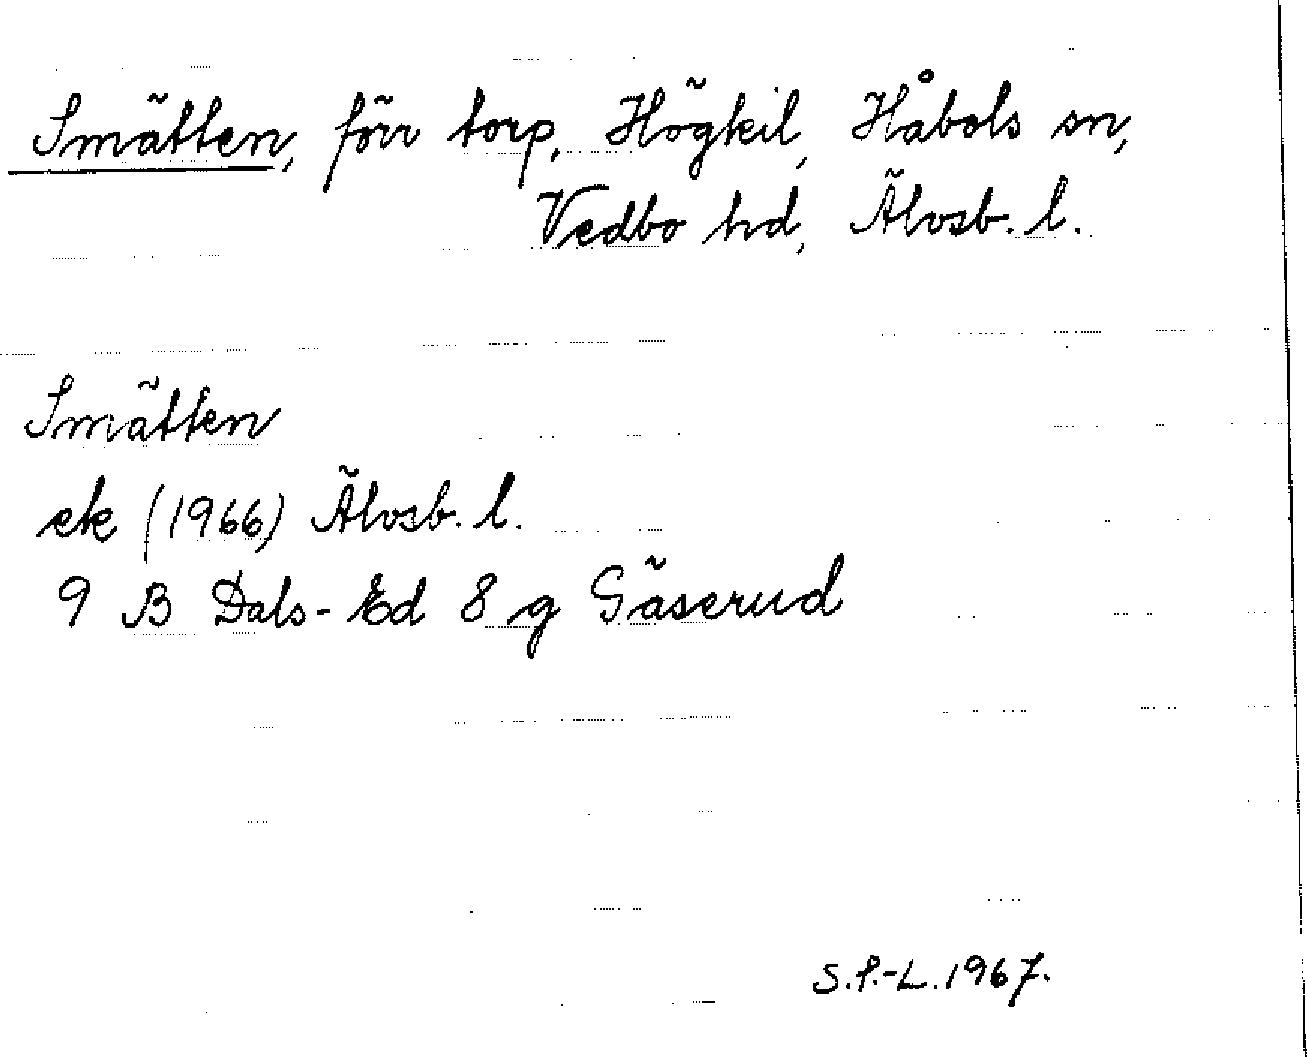 Smätten, förr torp, Högkil, Håbols sn,
Vedbo hd, Älvsb. l.
Smätten
ek (1966) Älvsb. l.
9 B Dals-Ed 8 g Gäserud
S.P.-L. 1967.